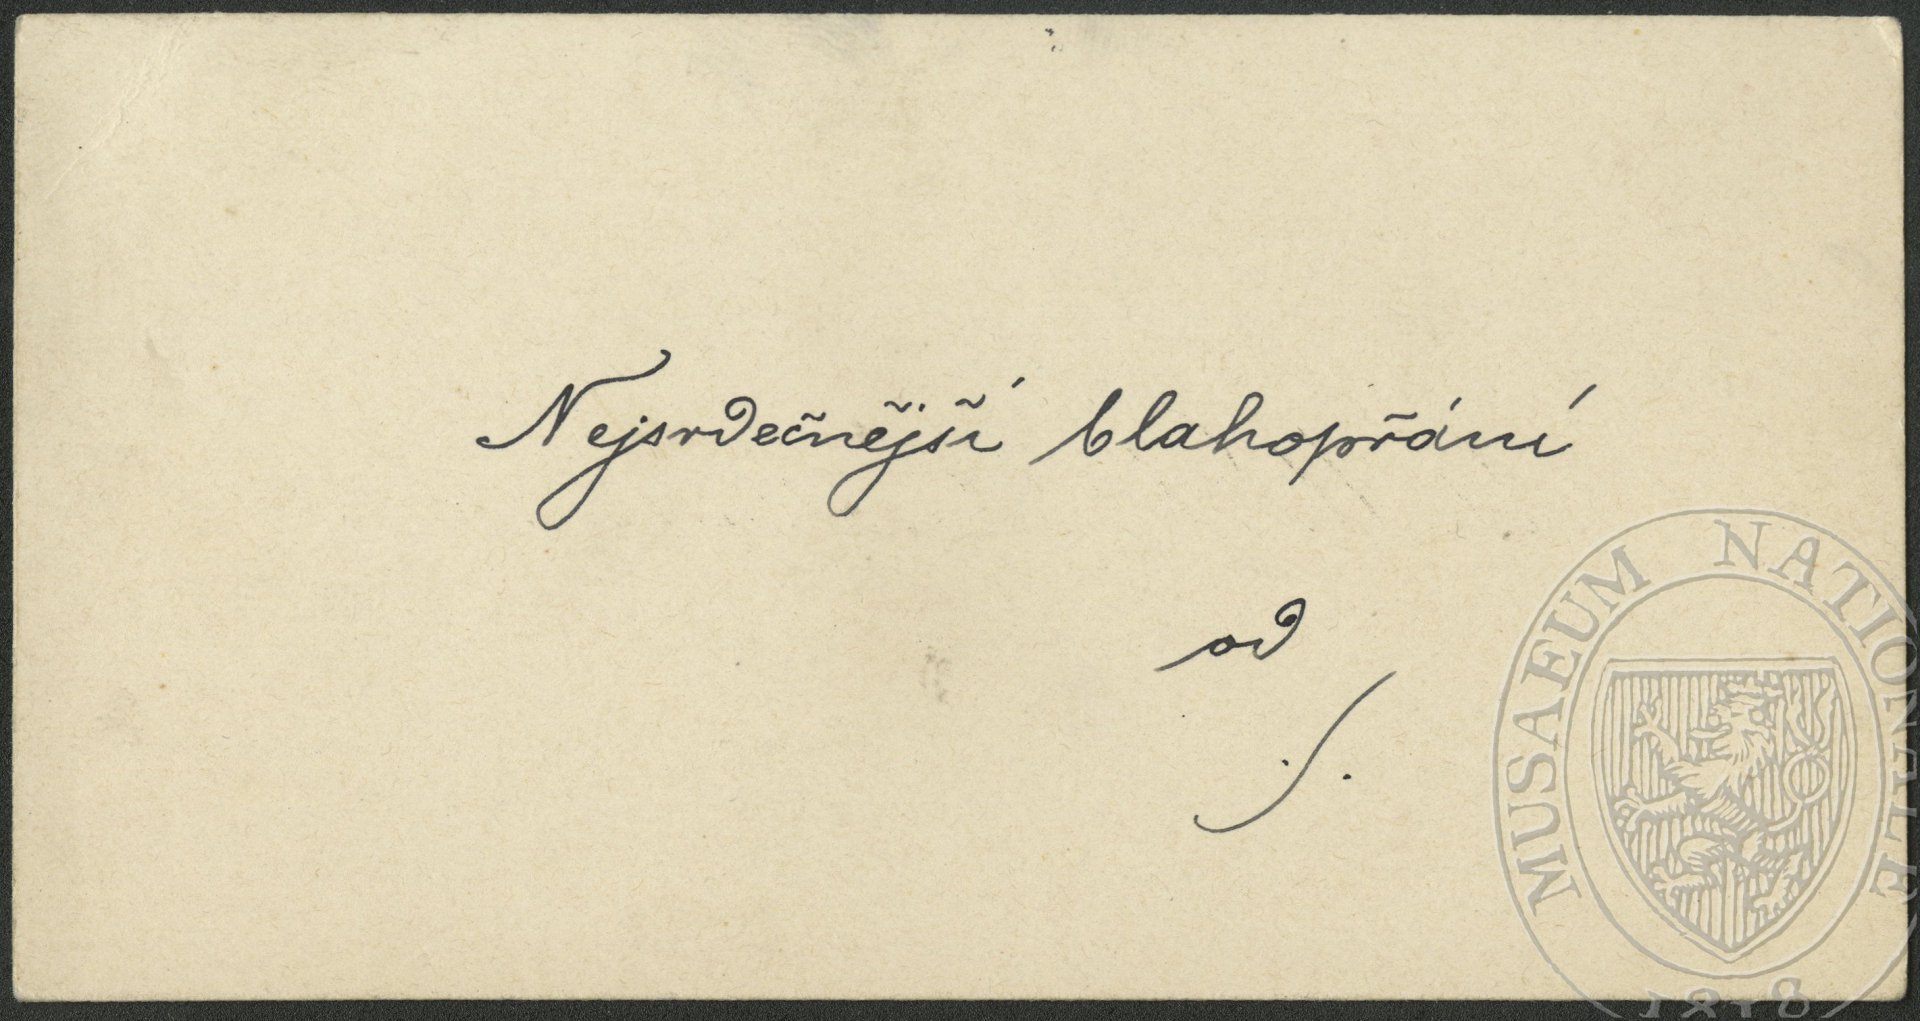 Nejsrdečnější blahopřání
od
./.
MUSAEUM NATIONALE
1818